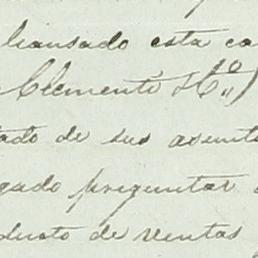 transado esta ca
Clemente Hº)
tado de sus asunto
gado preguntar
ducto de ventas